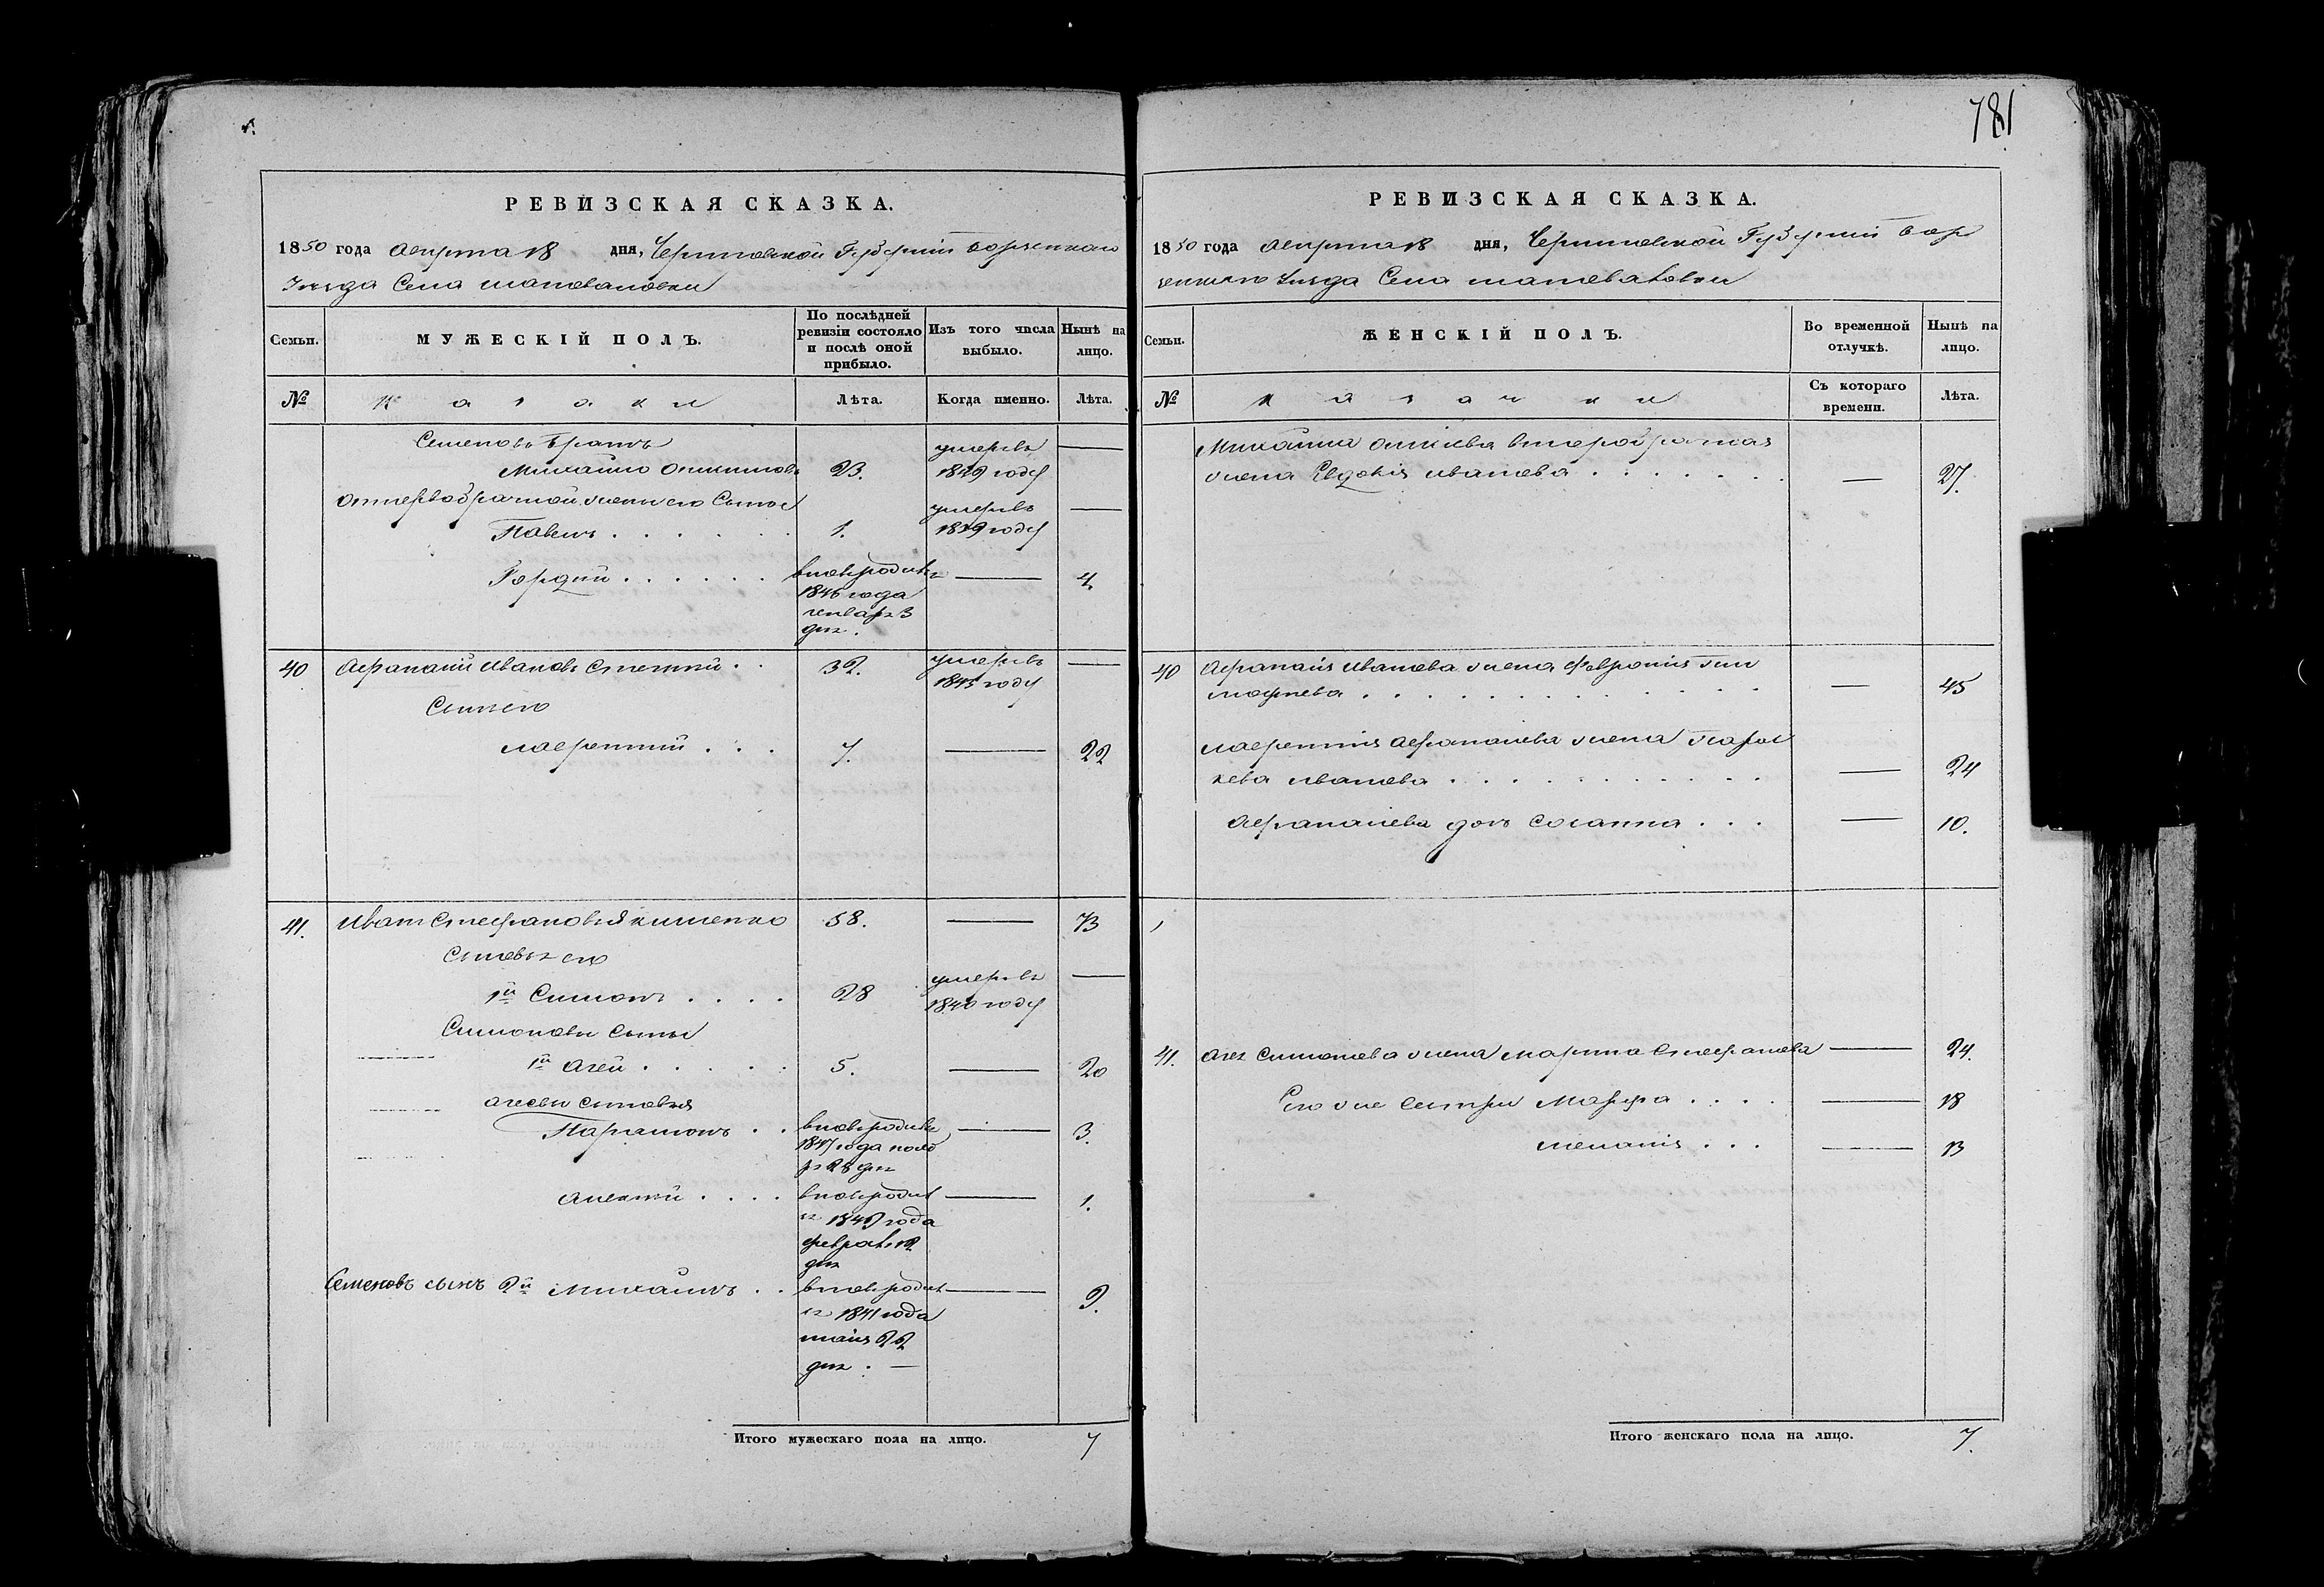 РЕВИЗСКАЯ СКАЗКА.
1850 года Августа 18 дня, Черниговской Губернии Борзенского
Уезда Села Шаповаловки
Семьи.
МУЖЕСКІЙ ПОЛЪ.
По послѣдней ревизіи состояло и послѣ оной прибыло.
Изъ того числа выбыло.
Нынѣ на лицо.
№
Казаки
Лѣта.
Когда именно.
Лѣта.
Семеновъ братъ
Михайло 23. умеръ 1829 году —
от первобрачной жены его Сыны
Павелъ . . . . . 1. умеръ 1839 году —
Гордий . . . . . вновь родивъ 1846 года генваря 3 дня. — 4.
40 Афанасий Ивановъ . . 32. умеръ 1845 году —
Сынъ его
Лаврентий . . . 7. — 22
41. Иванъ Стефановъ Якименко 58. — 73
Сыновья его
1й Симонъ . . . . 28 умеръ 1840 году —
Симоновы Сыны
1й Агей . . . . . 5. — 20
Агеевы сыновья
Парамонъ . . вновь родивъ 1847 года нояб ря 28 дня — 3.
Алексий . . . . вновь родив ся 1849 года февраля 12 дня — 1.
Семеновъ сынъ 2й Михаилъ . . вновь родив ся 1841 года мая 22 дня. — 9.
Итого мужескаго пола на лицо. 7
781
РЕВИЗСКАЯ СКАЗКА.
1850 года Августа 18 дня, Черниговской Губернии Бор
зенского Уезда Села Шаповаловки
Семьи.
ЖЕНСКІЙ ПОЛЪ.
Во временной отлучкѣ.
Нынѣ на лицо.
№
Казачки
Съ котораго времени.
Лѣта.
Михайла второбрачная
жена Евдокия Иванова . . . . . . — 27.
40 Афанасия Иванова жена Феврония Тим
мофеева . . . . . . . . . . . — 45
Лаврентия Афанасиева жена Парас
кева Иванова . . . . . . . . . — 24
Афанасиева дочь Сосанна . . . — 10.
41. Агея Симонова жена Марина Стефанова — 24.
Его же сестры Марфа . . . . — 18
Мелания . . . — 13
Итого женскаго пола на лицо. 7.